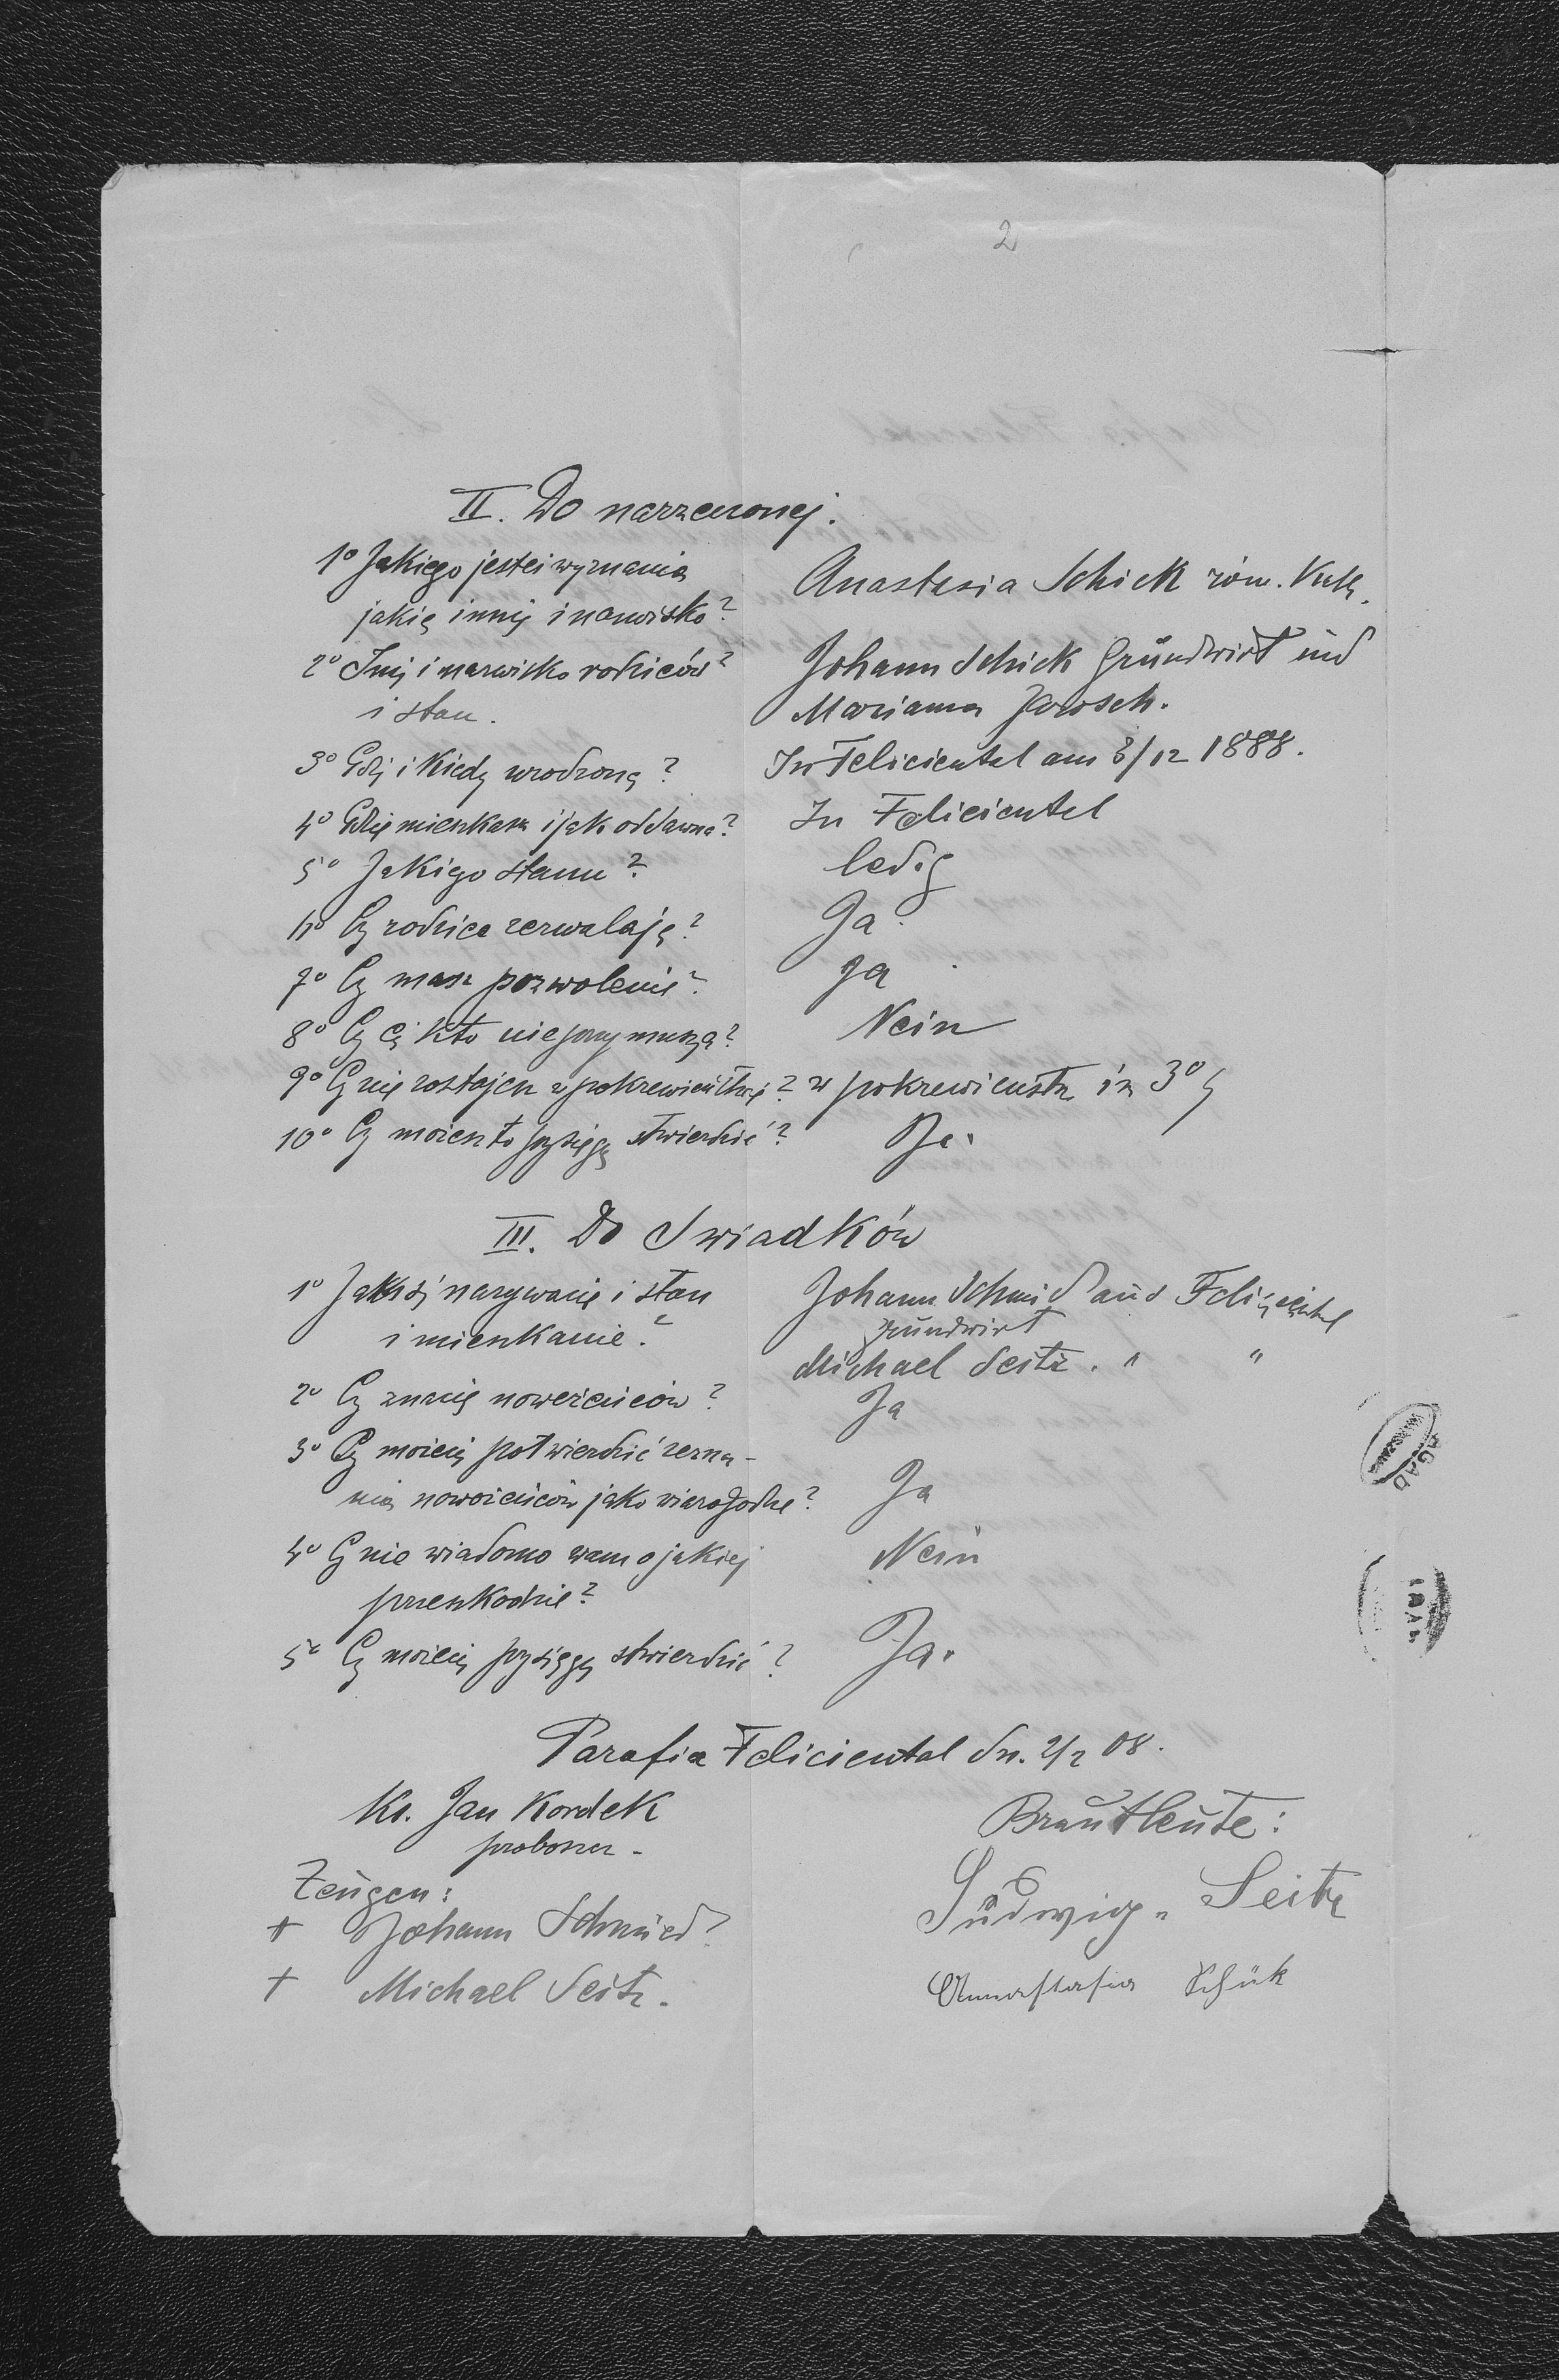 2
II. Do narzeczonej.
1° Jakiego jesteś wyznania
jakie imię i nazwisko? Anastasia Schick röm. Kath.
2° Imię i nazwisko rodziców? Johann Schick Grundwirt und
i stan. Marianna Jarosch.
3° Gdzie i Kiedy urodzona? In Felicientel am 8/12 1888.
4° Gdzie mieszkasz i jak oddawna? In Felicientel
5° Jakiego stanu? ledig
6° Czy rodzice zezwalają? Ja.
7° Czy masz pozwolenie? Ja
8° Czy Cię kto nie przymusza? Nein
9° Czy nie zostajesz w pokrewieństwie? w pokrewieństw. in 3° g
10° Czy możesz to przysięgą stwierdzić? Ja.
III. Do Swiadków
1° Jak się nazywacie i stan Johann Schmid aus Felicientel
i mieszkanie? grundwirt
Michael Seitz. " "
2° Czy znacie nowożeńców? Ja
3° Czy możecie potwierdzić zezna-
nia nowożeńców jako wiarogodne? Ja
4° Czy nie wiadomo wam o jakiej Nein
przeszkodzie?
5° Czy możecie przysięgą stwierdzić? Ja.
Parafia Feliciental dn. 2/2 08.
Ks. Jan Kordek
proboszcz.
Brautleute:
Zeugen:
+ Johann Schmied
Ludwig Seitz
+ Michael Seitz.
Annastasia Schük
AGAD
WARSZAWA